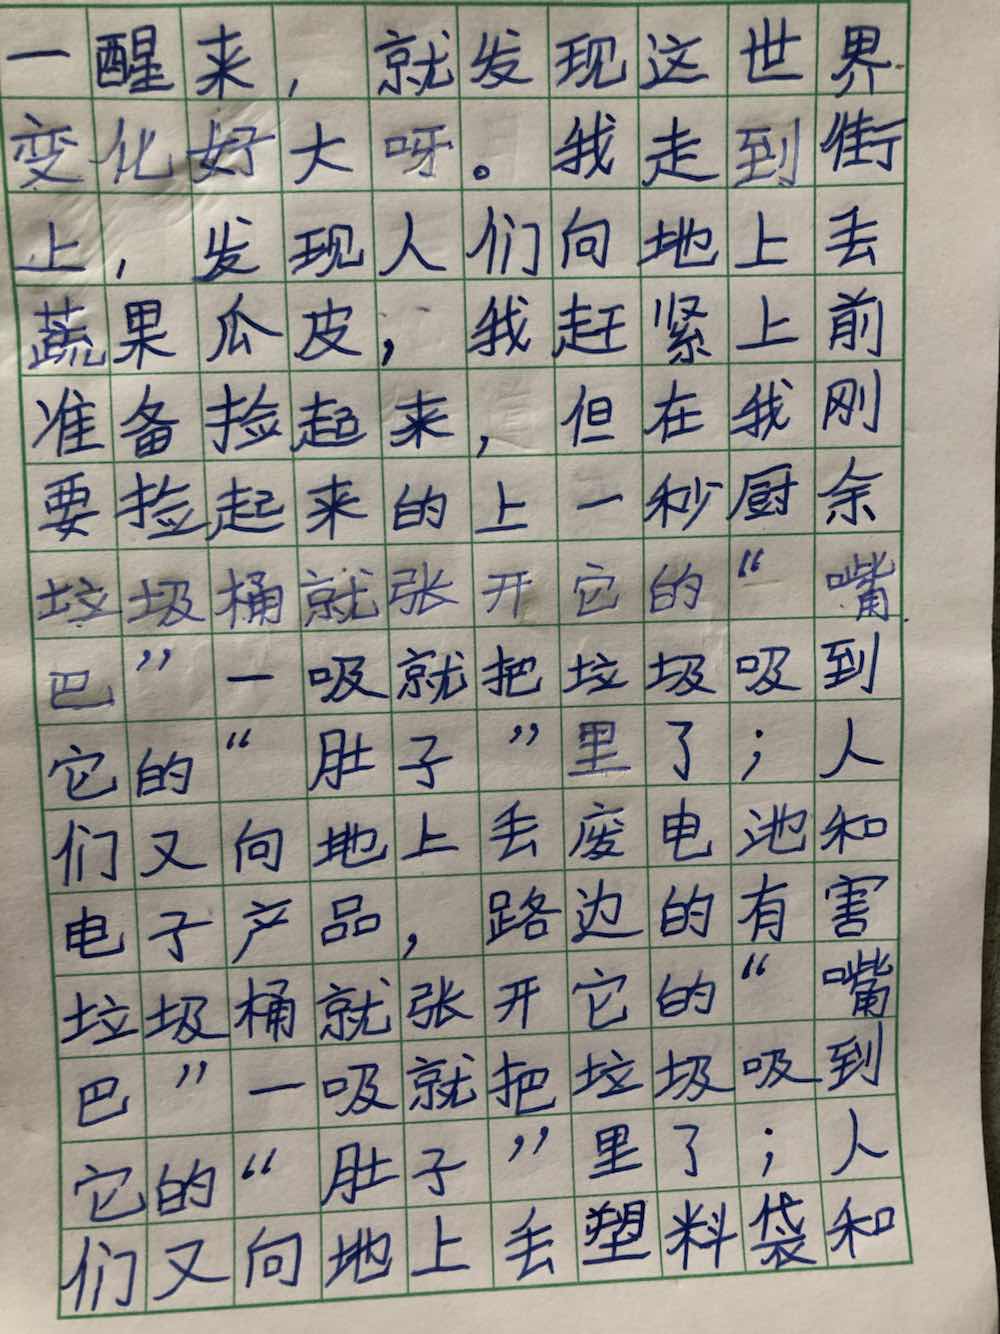 一醒来，就发现这世界
变化好大呀。我走到街
上，发现人们向地上丢
蔬果瓜皮，我赶紧上前
准备捡起来，但在我刚
要捡起来的上一秒厨余
垃圾桶就张开它的“嘴
巴”一吸就把垃圾吸到
它的“肚子”里了；人
们又向地上丢废电池和
电子产品，路边的有害
垃圾桶就张开它的“嘴
巴”一吸就把垃圾吸到
它的“肚子”里了；人
们又向地上丢塑料袋和